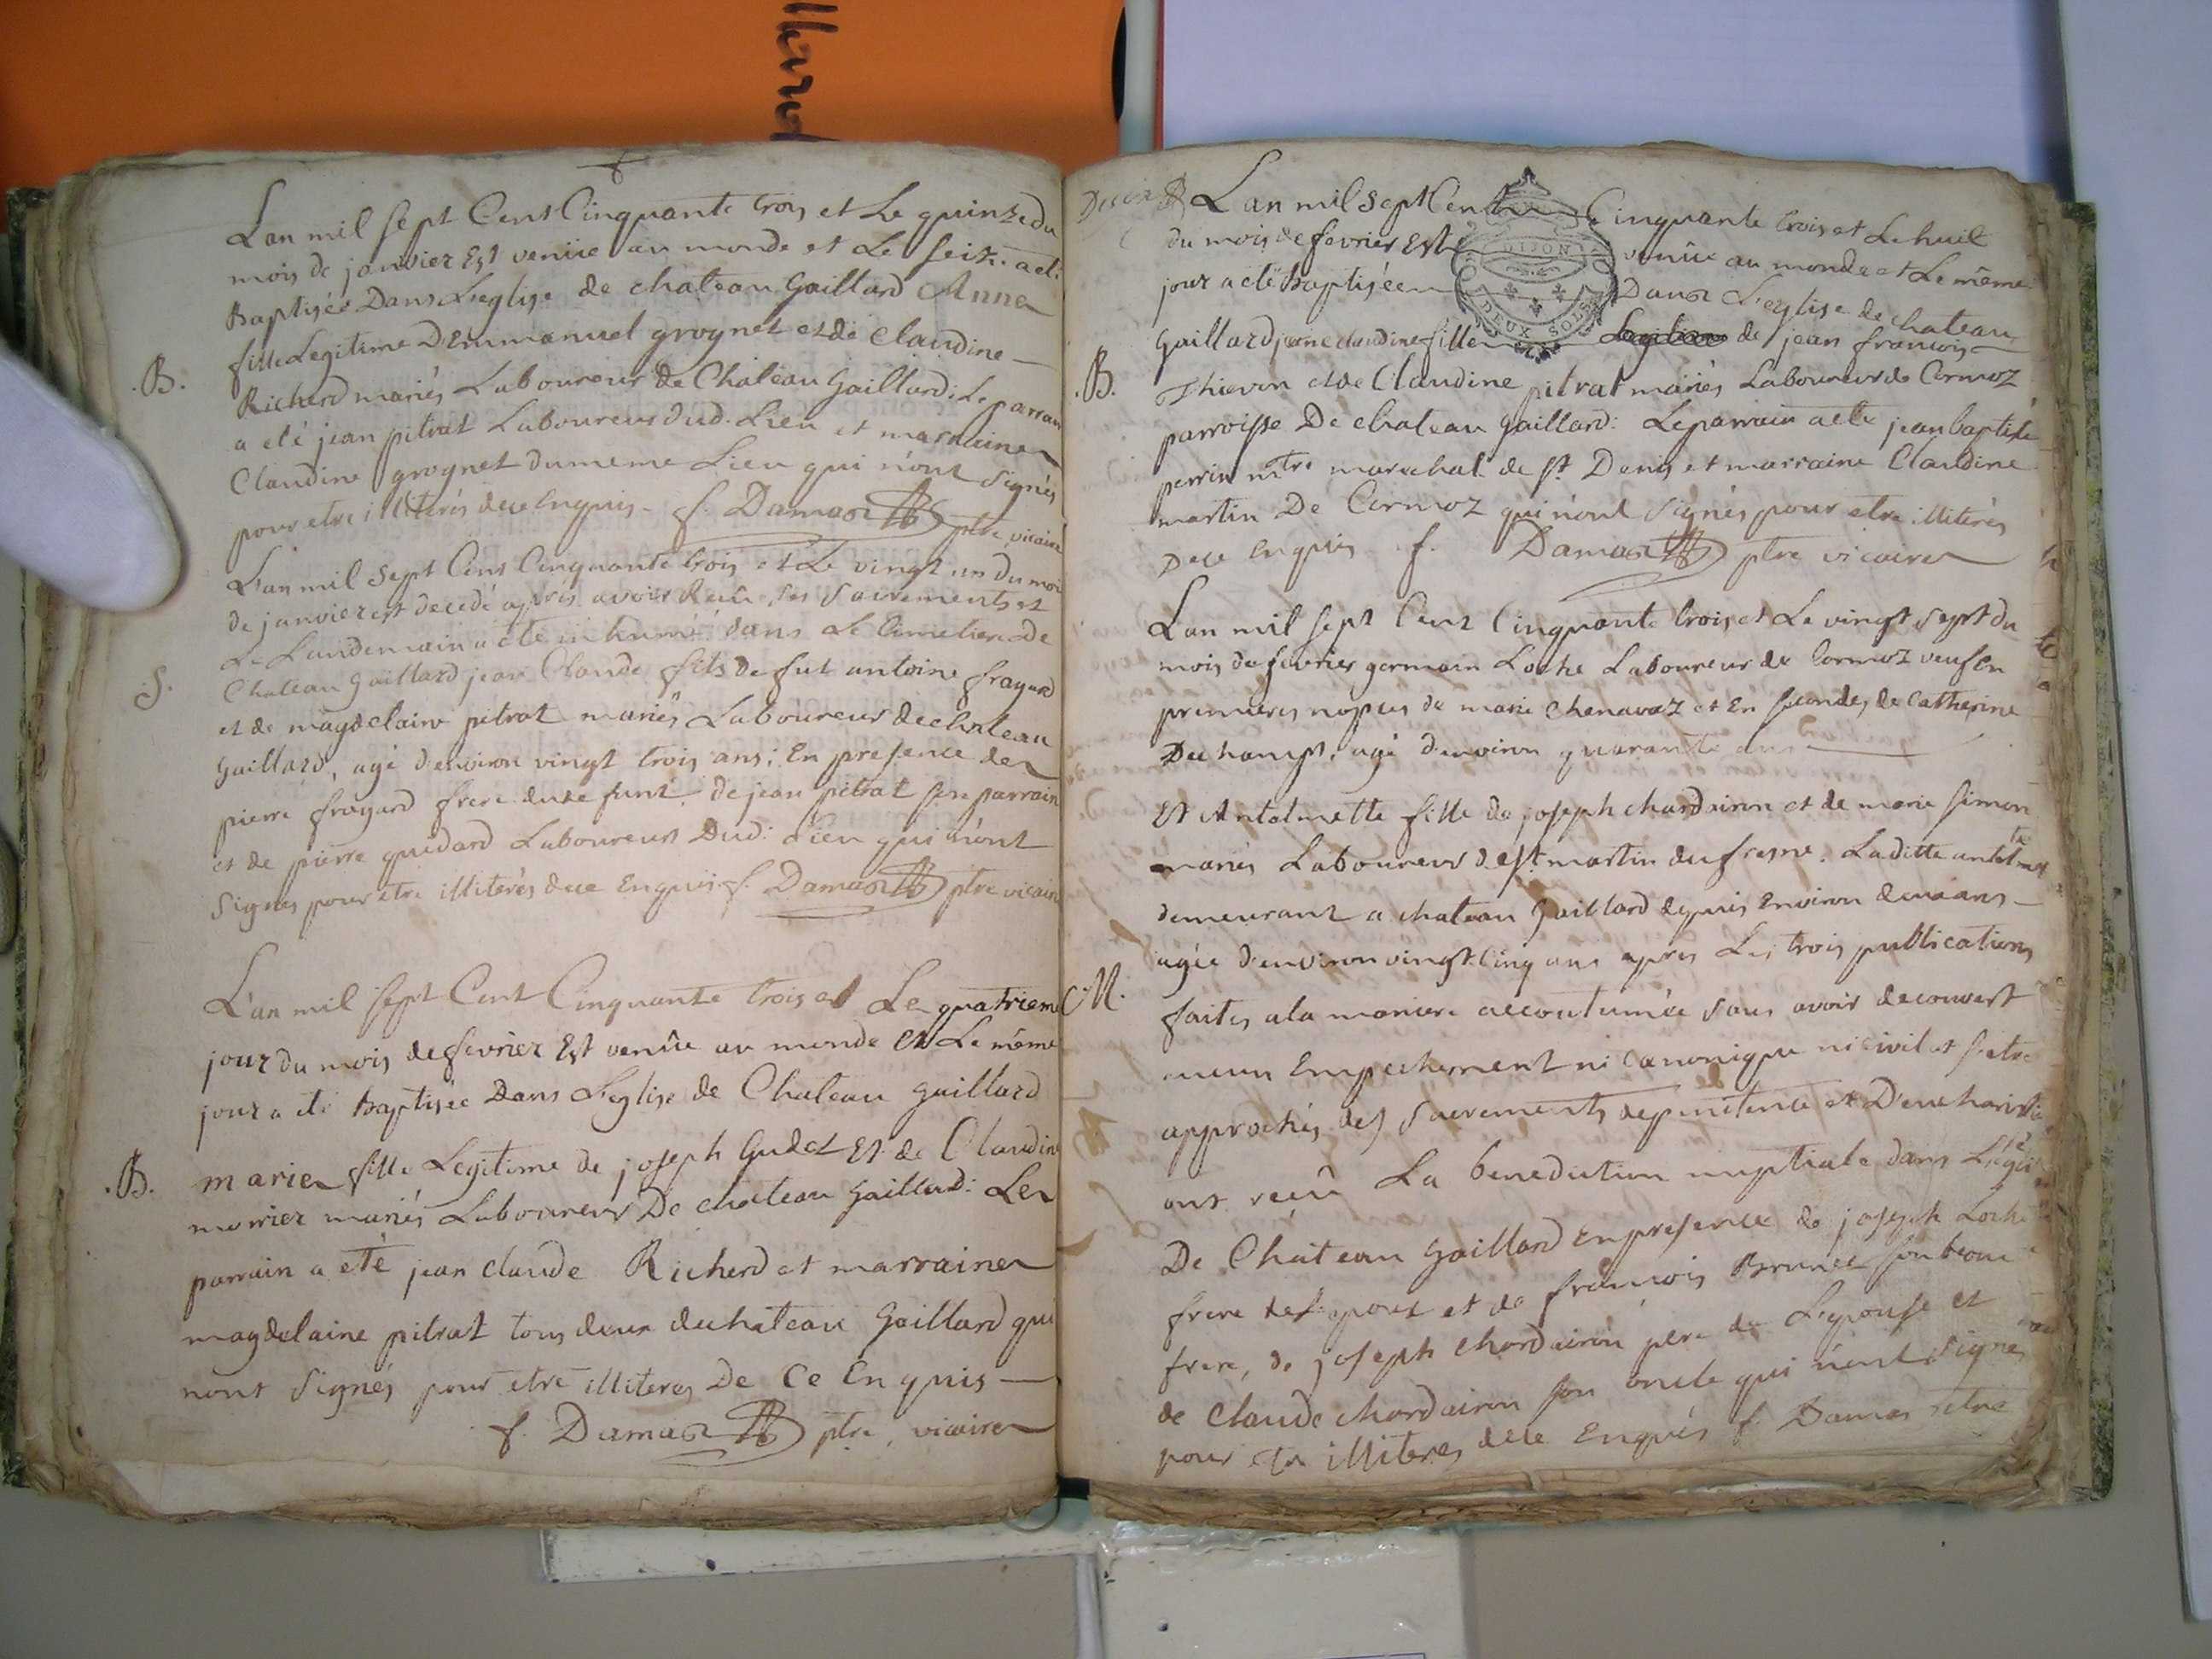 L'an mil sept Cent Cinquante trois et Le quinze du
mois de janvier Est venüe au monde et Le seiz. a eté
Baptisée Dans L'eglise de chateau Gaillard Anne
fille Legitime D'Emmanuel grognet et de Claudine
.B.
Richerd mariés Laboureur de Chateau Gaillard: Le parrain
a eté jean pitrat Laboureur dud. Lieu et marraine
Claudine grognet du meme Lieu qui n'ont signés
pour etre illiterés de ce Enquis. f. Damas ptre vicaire
L'an mil sept Cent Cinquante trois et Le vingt un du mois
de janvier est decedé après avoir Reçû ses sacrements et
Le Landemain a eté inhumé dans Le Cimetiere De
S.
Chateau Gaillard jean Claude fils de fut antoine frayard
et de magdelaine pitrat mariés Laboureur de chateau
Gaillard, agé d'environ vingt trois ans: En presence de
pierre frayard frere du defunt, de jean pitrat son parrain
et de pierre quedard Laboureurs Dud: Lieu qui n'ont
signés pour etre illiterés de ce Enquis f. Damas ptre vicaire
L'an mil sept Cent Cinquante trois et Le quatrieme
jour du mois de fevrier Est venüe au monde Et Le même
jour a eté Baptisée Dans L'eglise de Chateau Gaillard
.B.
marie fille Legitime de joseph Gudet Et de Claudine
mo mariés Laboureur De chateau Gaillard: Le
parrain a eté jean claude Richerd et marraine
magdelaine pitrat tous deux de chateau Gaillard qui
nont signés pour etre illiteres De Ce Enquis
f. Damas ptre, vicaire
L'an mil sept Cent Cinquante trois et Le huit
du mois de fevrier Est venüe au monde et Le même
DIJON
DEUX SOLS
jour a eté Baptisée Dans L'eglise de chateau
Gaillard jeane claudine fille de jean francois
.B.
Thievon et de Claudine pitrat mariés Laboureur de Cormoz
parroisse De chateau Gaillard: Le parrain a eté jean baptiste
perrin mtre marechal de St Denis et marraine Claudine
martin De Cormoz qui n'ont signés pour etre illiterés
De ce Enquis f. Damas ptre vicaire
L'an mil sept Cent Cinquante trois et Le vingt sept du
mois de fevrier germain Loche Laboureur de Cormoz veuf En
premieres nopces de marie chenavaz et En secondes de Catherine
Dechamps, agé d'environ quarante ans
Et Antelmette fille de joseph chardairon et de marie simon
mariés Laboureur de st martin du fresne. Laditte antelmette
demeurant a chateau Gaillard depuis Environ deux ans
agée d'environ vingt cinq ans apres Les trois publications
.M.
faites a la maniere accoutumée sans avoir decouvert
aucun Empechement ni Canonique ni civil et s'etre
approchés des sacrements de penitence et D'eucharistie
ont reçû La benediction nuptiale dans L'eglise
De Chateau Gaillard En presence de joseph Loche
frere de l'epoux et de françois Brunet son beau
frere, de joseph chardairon pere de L'epouse et
de Claude chardairon son oncle qui n'ont signés
pour etre illiteres de ce Enquis f. Damas ptre